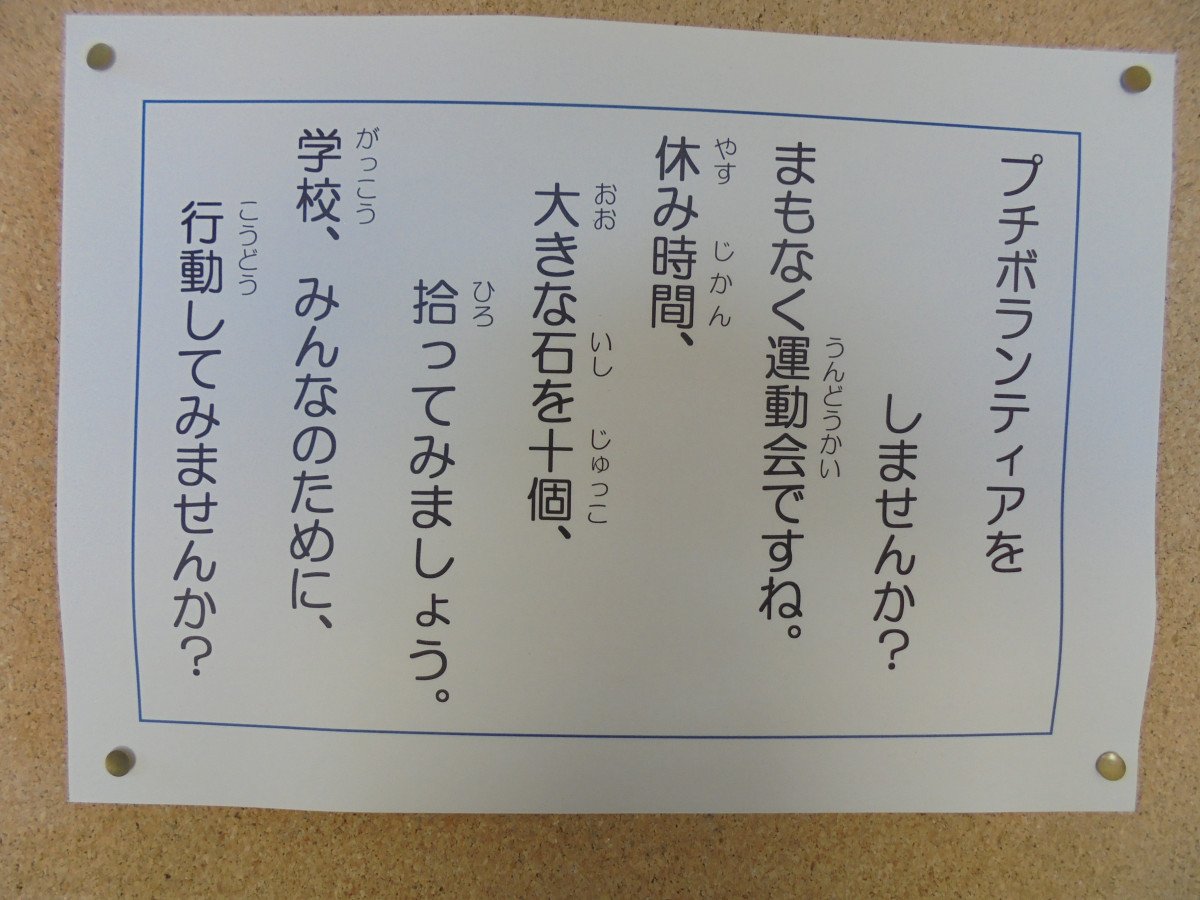 プチボランティアを
しませんか？
まもなく運動会ですね。
うんどうかい
休み時間、
やす じかん
大きな石を十個、
おお いし じゅっこ
拾ってみましょう。
ひろ
学校、みんなのために、
がっこう
行動してみませんか？
こうどう